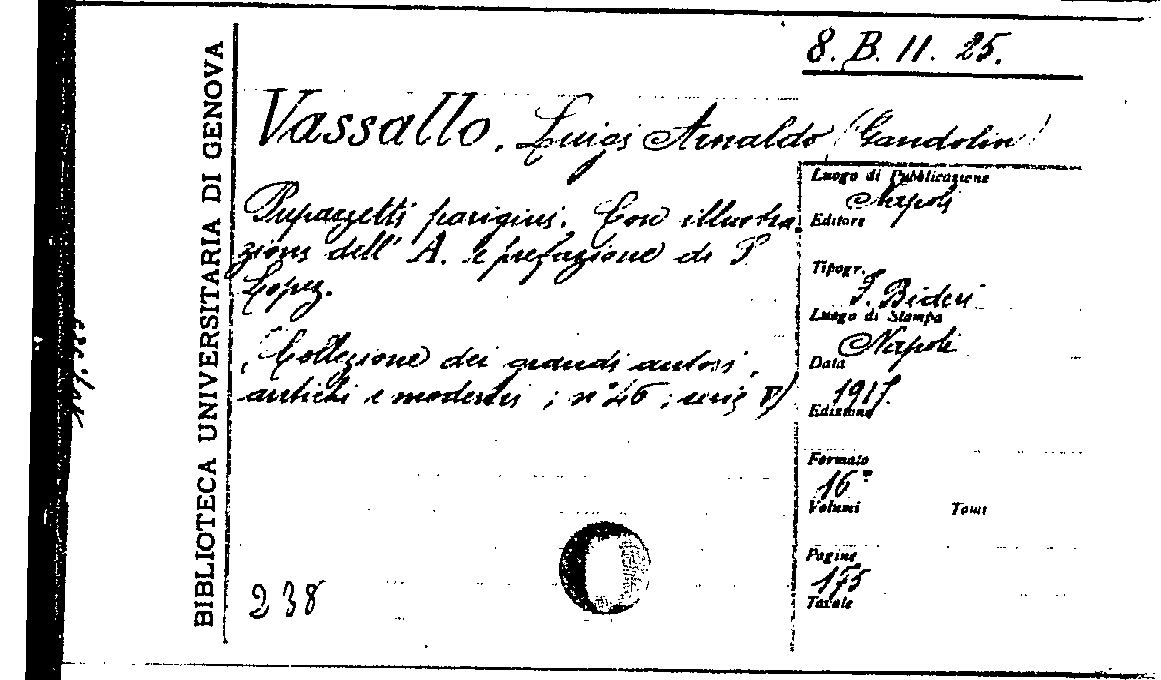 8. B. 11. 25.
BIBLIOTECA UNIVERSITARIA DI GENOVA
Vassallo, Luigi Arnaldo (Gandolin)
Pupazzetti parigini. Con illustra
zioni dell' A. e prefazione di P.
Lopez.
(Collezione dei grandi autori,
antichi e moderni; n° 46; serie V)
238
Luogo di Pubblicazione
Napoli
Editore
Tipogr.
F. Bideri
Luogo di Stampa
Napoli
Data
Edizione
Formato
16°
Volumi Tomi
Pagine
175
Tavole